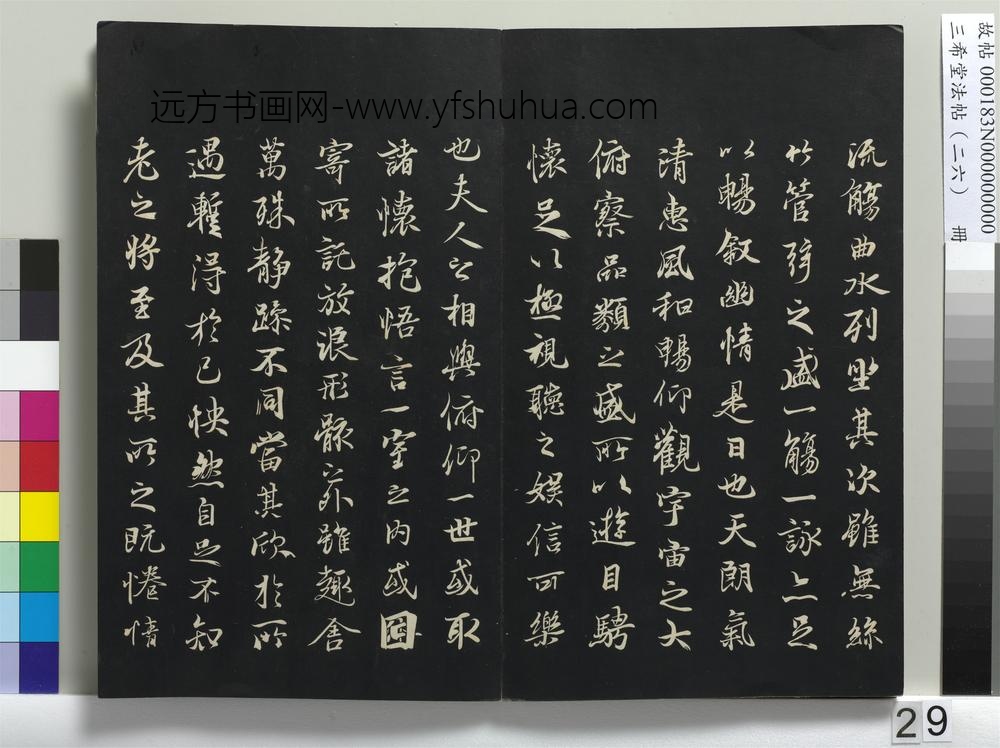 远方书画网-www.yfshuhua.com
故帖 000183N000000000
三希堂法帖（二六） 冊
流觴曲水列坐其次雖無絲
竹管弦之盛一觴一詠亦足
以暢叙幽情是日也天朗氣
清惠風和暢仰觀宇宙之大
俯察品類之盛所以遊目騁
懷足以極視聽之娱信可樂
也夫人之相與俯仰一世或取
諸懷抱悟言一室之內或因
寄所託放浪形骸之外雖趣舍
萬殊静躁不同當其欣於所
遇暫得於己怏然自足不知
老之将至及其所之既惓情
29